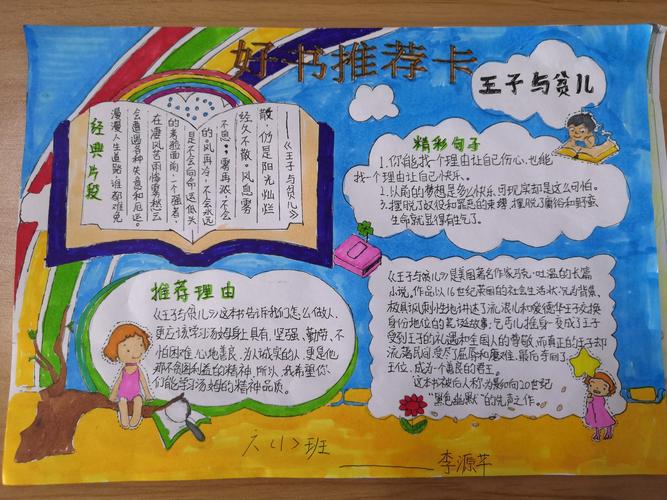 好书推荐卡
王子与贫儿
经典片段
漫漫人生道路,谁都难免
会遭遇各种失意和厄运。
在凄风苦雨惨雾愁云
的考验面前,一个强者,
是不会向命运低头
的。风再冷,不会永远
不息;雾再浓,不会
经久不散。风息雾
散,仍是阳光灿烂
——《王子与贫儿》
精彩句子
1.你能找个理由让自己伤心,也能
找一个理由让自己快乐。
2.以前的梦想是多么快乐,可现实却是这么可怕。
3.摆脱了奴役和罪恶的束缚,摆脱了庸俗和野蛮,
生命就显得有生气了。
推荐理由
《王子与贫儿》这本书告诉我们怎么做人,
更应该学习汤姆身上具有,坚强、勤劳、不
怕困难,心地善良,为人诚实的人,更是他
那不贪图利益的精神,所以,我希望你
们能学习汤姆的精神品质。
《王子与贫儿》是美国著名作家马克·吐温的长篇
小说。作品以16世纪英国的社会生活状况为背景,
极具讽刺性地讲述了流浪儿和爱德华王子交换
身份地位的荒诞故事,乞丐儿摇身一变成了王子
受到王子的礼遇和全国人的尊敬,而真正的王子却
流落民间,受尽了屈辱和磨难,最后夺回了
王位,成为一个善良的君王。
这本书被后人称为影响20世纪
“黑色幽默”的先声之作。
六(1)班
李源苹